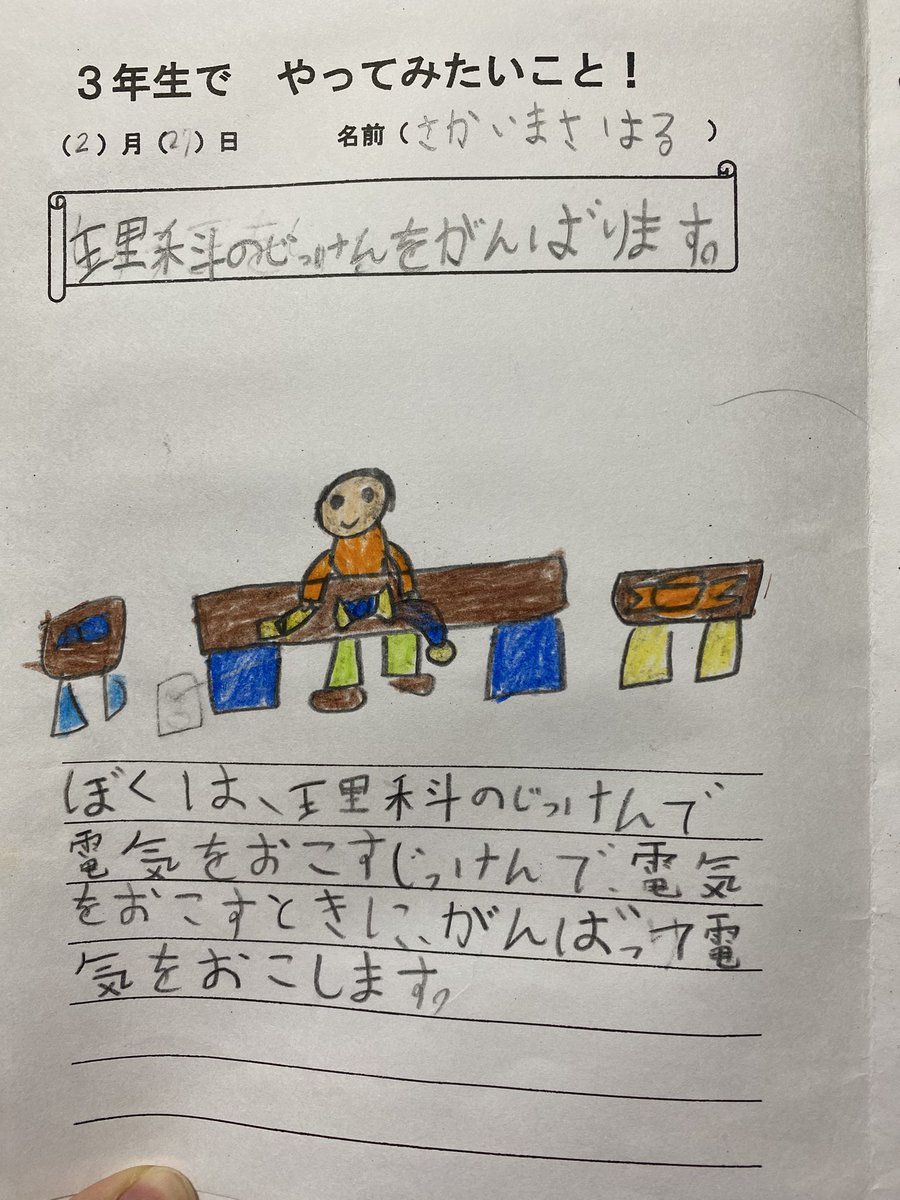 3年生で やってみたいこと！
(2)月(21)日 名前(さかいまさはる)
理科のじっけんをがんばります。
ぼくは、理科のじっけんで
電気をおこすじっけんで、電気
をおこすときに、がんばって電
気をおこします。